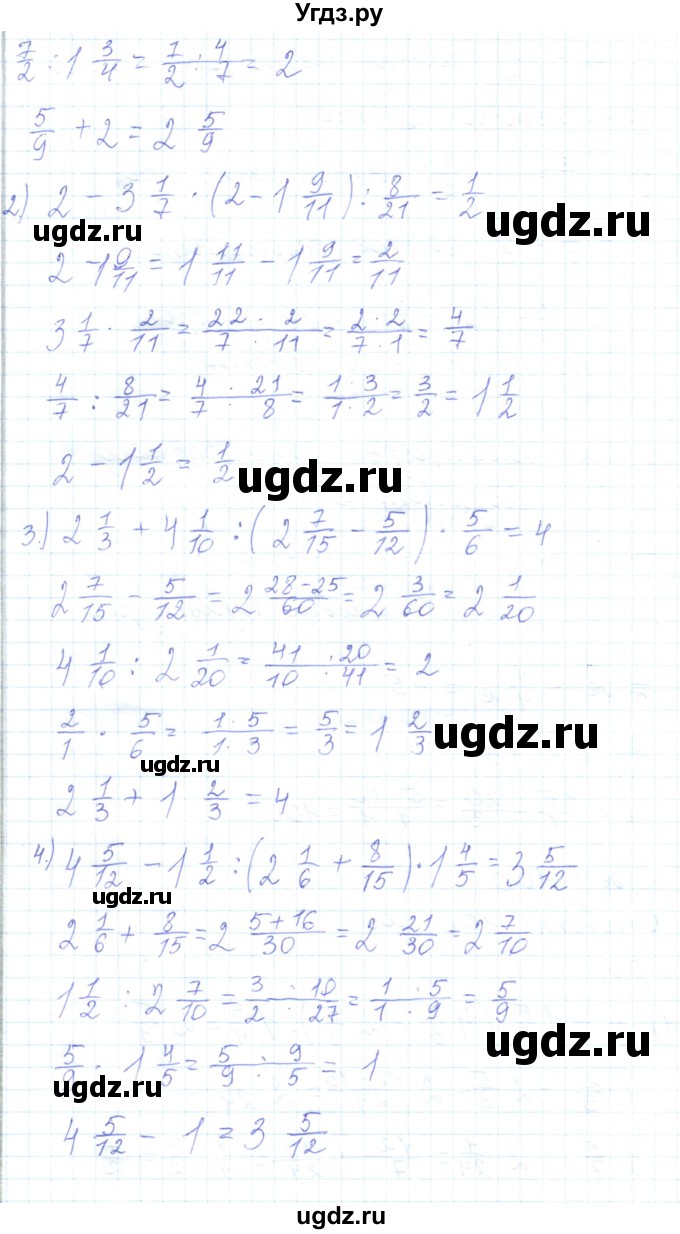 Угдз.ру
7/2 : 1 3/4 = (7 · 4)/(2 · 7) = 2
5/9 + 2 = 2 5/9
2) 2 - 3 1/7 · (2 - 1 9/11) : 8/21 = 1/2
ugdz.ru ugdz.ru
2 - 1 9/11 = 1 11/11 - 1 9/11 = 2/11
3 1/7 · 2/11 = (22 · 2)/(7 · 11) = (2 · 2)/(7 · 1) = 4/7
4/7 : 8/21 = (4 · 21)/(7 · 8) = (1 · 3)/(1 · 2) = 3/2 = 1 1/2
2 - 1 1/2 = 1/2
ugdz.ru
3.) 2 1/3 + 4 1/10 : (2 7/15 - 5/12) · 5/6 = 4
2 7/15 - 5/12 = 2 (28-25)/60 = 2 3/60 = 2 1/20
4 1/10 : 2 1/20 = (41 · 20)/(10 · 41) = 2
2/1 · 5/6 = (1 · 5)/(1 · 3) = 5/3 = 1 2/3
ugdz.ru
ugdz.ru
2 1/3 + 1 2/3 = 4
4.) 4 5/12 - 1 1/2 : (2 1/6 + 8/15) · 1 4/5 = 3 5/12
ugdz.ru
2 1/6 + 8/15 = 2 (5+16)/30 = 2 21/30 = 2 7/10
1 1/2 : 2 7/10 = (3 · 10)/(2 · 27) = (1 · 5)/(1 · 9) = 5/9
ugdz.ru
5/9 · 1 4/5 = (5 · 9)/(9 · 5) = 1
ugdz.ru
4 5/12 - 1 = 3 5/12
ugdz.ru